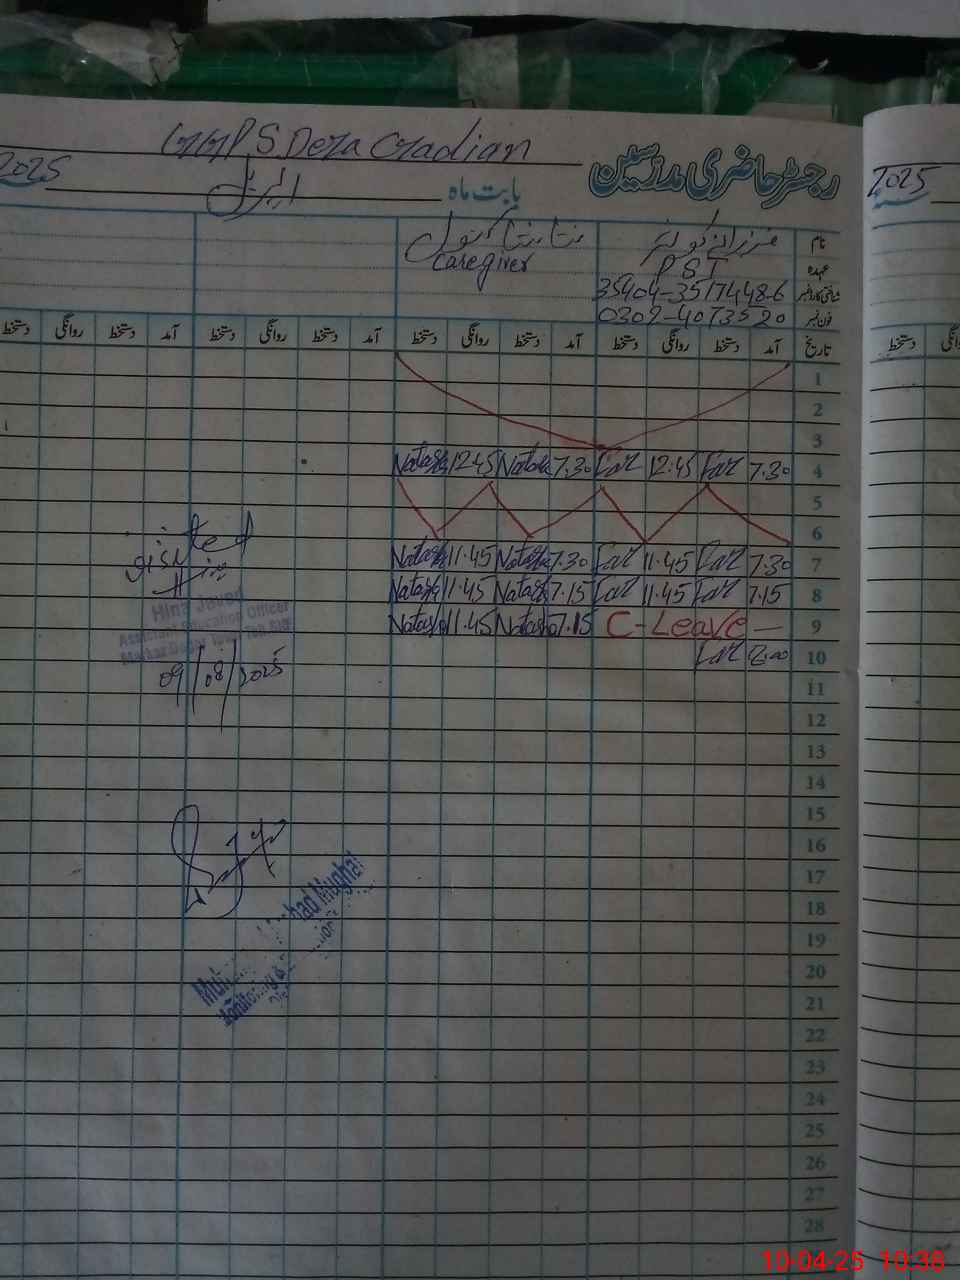 GGPS Dera Gradian
رجسٹر حاضری مدرسین
2025
اپریل
بابت ماہ
2025
نام فرزانہ کوثر نتاشا کنول
عہدہ PST Caregiver
شناختی کارڈ نمبر 35404-3517448-6
فون نمبر 0309-4073520
تاریخ آمد دستخط روانگی دستخط آمد دستخط روانگی دستخط آمد دستخط روانگی دستخط آمد دستخط روانگی دستخط
دستخط
1
2
3
4 7.30 Far 12.45 Far 7.30 Natasha 12.45 Natasha
5
6
7 7.30 Far 11.45 Far 7.30 Natasha 11.45 Natasha
8 7.15 Far 11.45 Far 7.15 Natasha 11.45 Natasha
9 — C-Leave 7.15 Natasha 11.45 Natasha
10 Far
11
12
13
14
15
16
17
18
19
20
21
22
23
24
25
26
27
28
visited
Hina Javed
Assistant Education Officer
Markaz
09/08/2025
Mughal
Monitoring
10-04-25 10:38